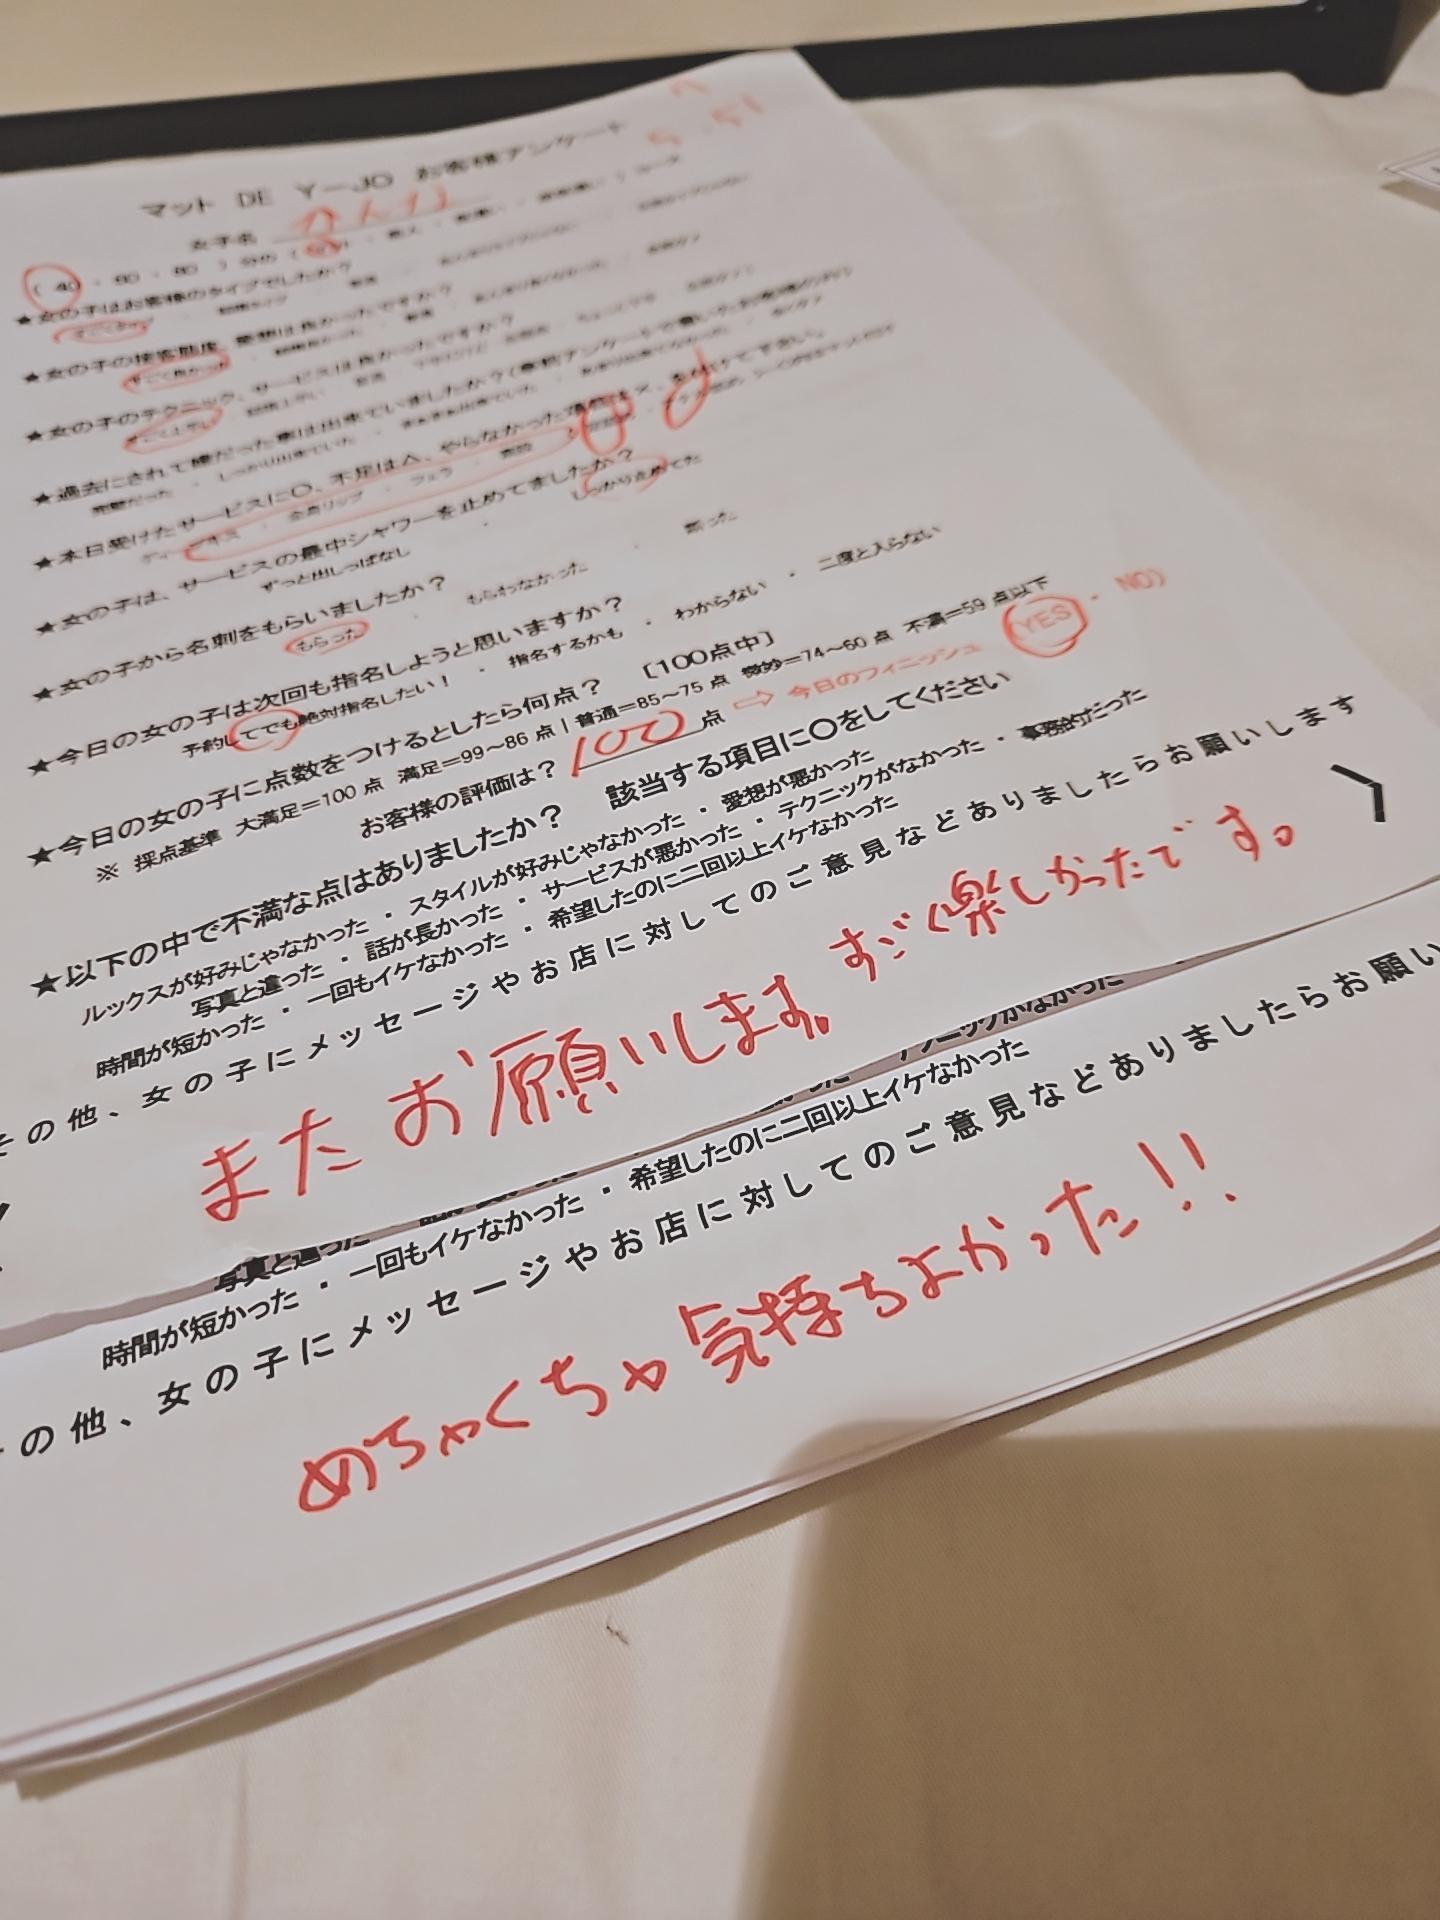 マット DE Y-JO お客様アンケート
女子名 かんな
( 40 ・ 60 ・ 80 ) 分の
★女の子はお客様のタイプでしたか?
すごくタイプ
★女の子の接客態度、愛想は良かったですか?
すごく良かった
★女の子のテクニック、サービスは良かったですか?
すごく上手い
★過去にされて嫌だった事は出来ていましたか?
完璧だった ・ しっかり出来ていた
★本日受けたサービスに〇、不足は△、やらなかった項目は×、をつけて下さい。
ディープキス ・ 全身リップ ・ フェラ
★女の子は、サービスの最中シャワーを止めてましたか?
ずっと出しっぱなし ・ しっかり止めてた
★女の子から名刺をもらいましたか?
もらった ・ もらわなかった ・ 断った
★今日の女の子は次回も指名しようと思いますか?
予約してでも絶対指名したい! ・ 指名するかも ・ わからない ・ 二度と入らない
★今日の女の子に点数をつけるとしたら何点? [100点中]
※ 採点基準 大満足=100 点 満足=99~86 点 | 普通=85~75 点 微妙=74~60 点 不満=59 点以下
お客様の評価は? 100 点 ⇨ 今日のフィニッシュ (YES ・ NO)
★以下の中で不満な点はありましたか? 該当する項目に〇をしてください
ルックスが好みじゃなかった ・ スタイルが好みじゃなかった ・ 愛想が悪かった
写真と違った ・ 話が長かった ・ サービスが悪かった ・ テクニックがなかった ・ 事務的だった
時間が短かった ・ 一回もイケなかった ・ 希望したのに二回以上イケなかった
その他、女の子にメッセージやお店に対してのご意見などありましたらお願いします
またお願いします。すごく楽しかったです。
テクニックがなかった
写真と違った
時間が短かった ・ 一回もイケなかった ・ 希望したのに二回以上イケなかった
の他、女の子にメッセージやお店に対してのご意見などありましたらお願い
めちゃくちゃ気持ちよかった!!